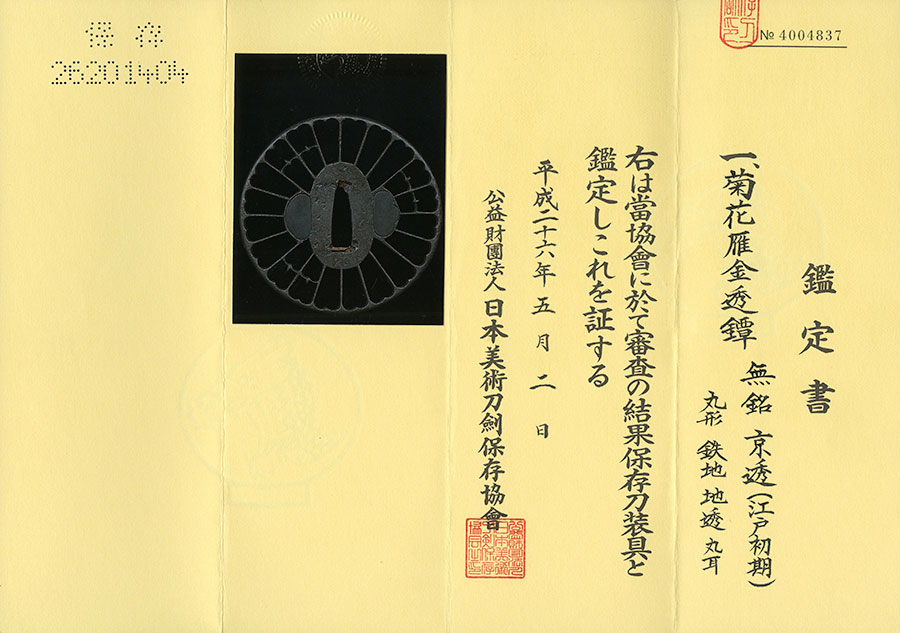 № 4004837
鑑定書
一、菊花雁金透鐔
無銘 京透(江戸初期)
丸形 鉄地 地透 丸耳
右は當協會に於て審査の結果保存刀装具と
鑑定しこれを証する
平成二十六年五月二日
公益財團法人 日本美術刀劍保存協會
保存
26201404